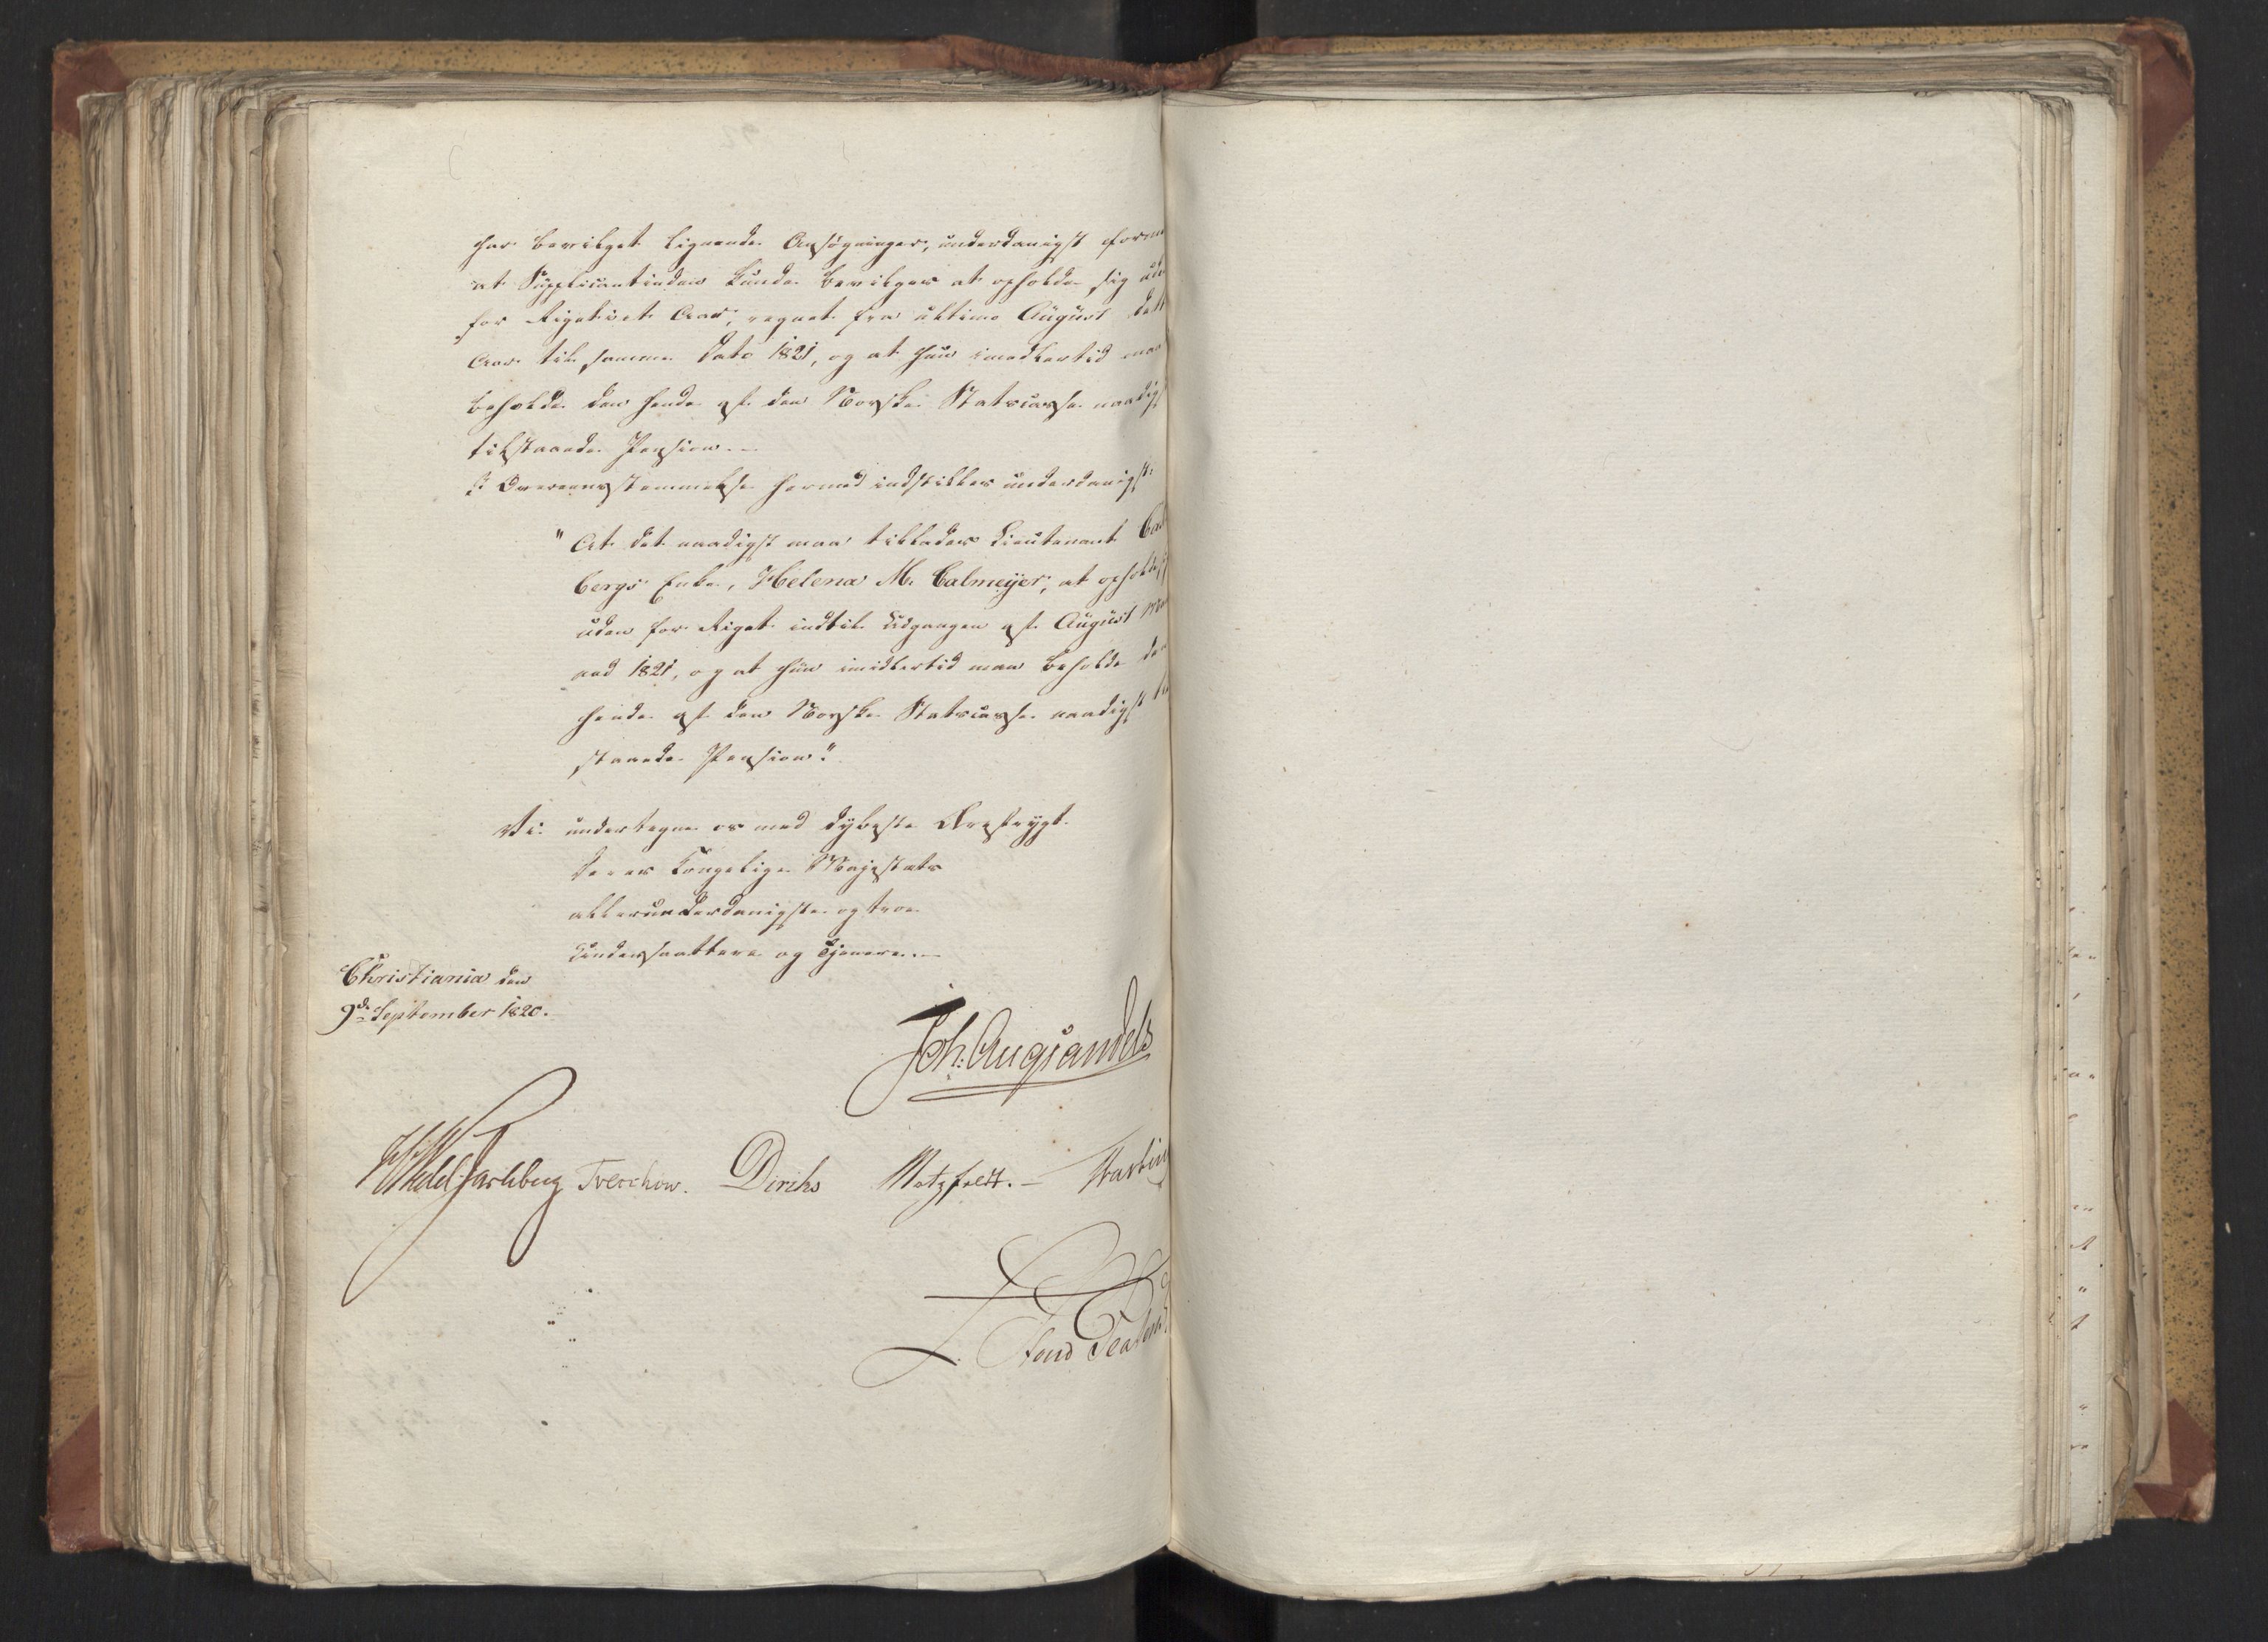 har bevilget lignende Ansøgninger, underdanigst form
at Supplicantinden kunde bevilges at opholde sig ude
for Riget et Aar, regnet fra ultimo August dett
Aar til samme Dato 1821, og at hun imedlertid maa
beholde den hende af den Norske Statscasse naadigst
tilstaaede Pension.
I Overeensstemmelse hermed indstilles underdanigst:
"At det naadigst maa tillades Lieutenant
bergs Enke, Helena M. Calmeyer, at opholde
uden for Riget indtil Udgangen af August
ned 1821, og at hun imidlertid maa beholde den
hende af den Norske Statscasse naadigst
staaede Pension".
Vi undertegne os med dybeste Ærefrygt.
Deres Kongelige Majestæts
allerunderdanigste og troe
Undersaattere og Tjenere.
Christiania den
9de September 1820.
Joh: Aug Sandels
Wedel Jarlsberg Treschow. Diriks Motzfeldt.